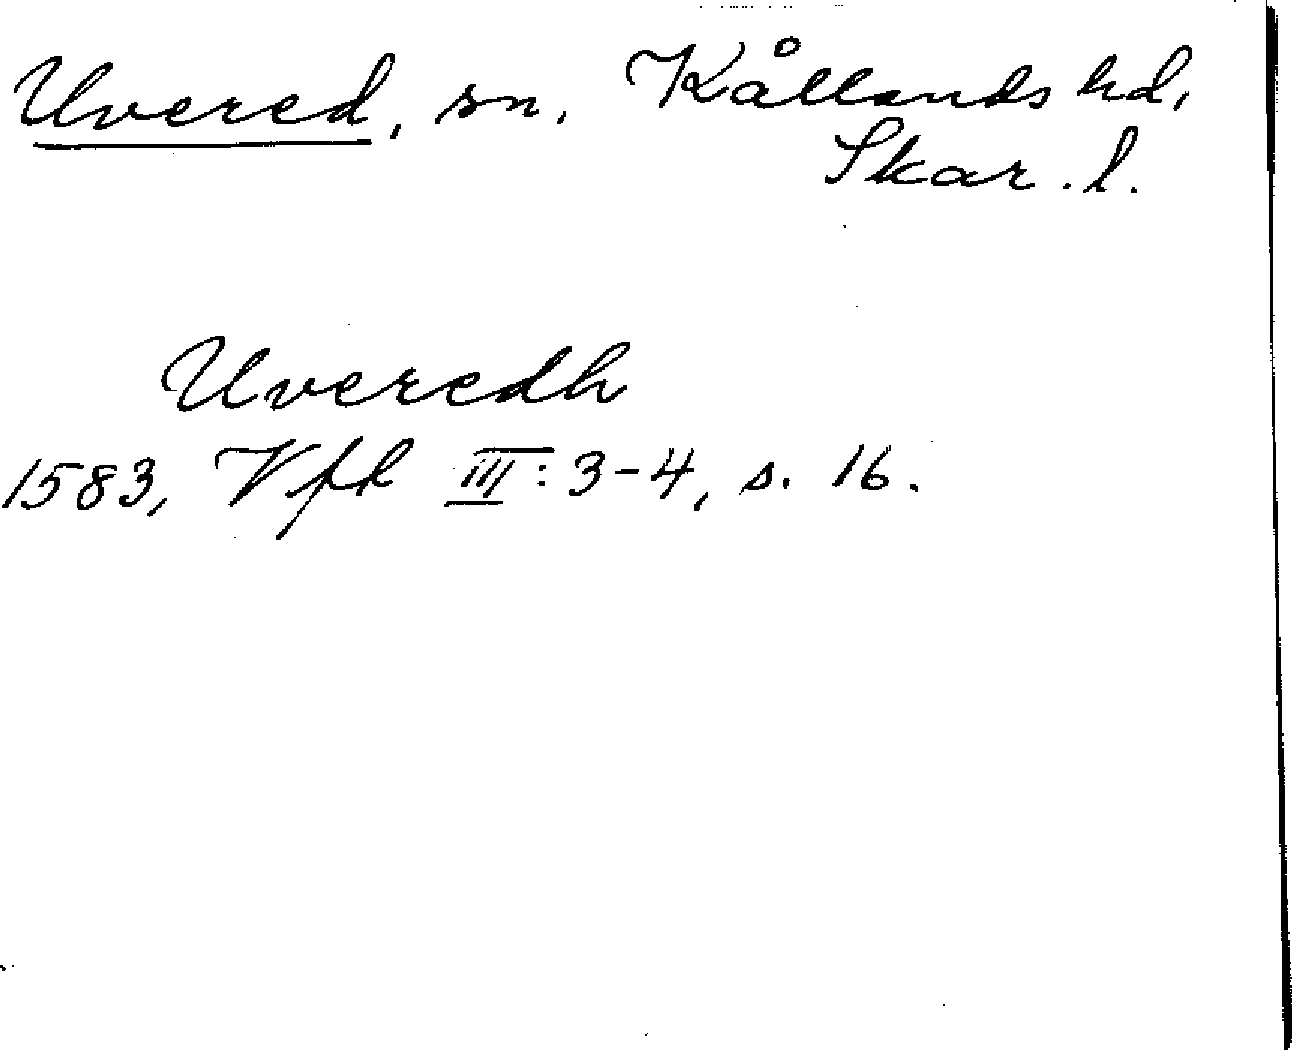 Uvered, sn. Kållands hd,
Skar. l.
Uveredh
1583, Vfk III: 3-4, s. 16.